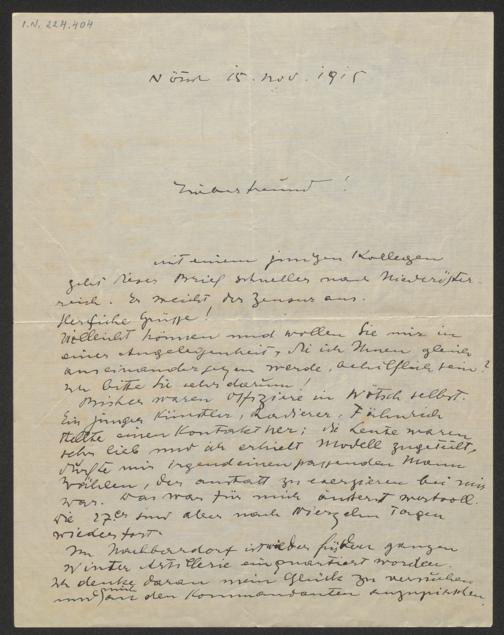 I.N. 224.404
Nötsch 15. Nov. 1915
Lieber Freund!
mit einem jungen Kollegen
geht dieser Brief schneller nach Niederöster-
reich. Er weicht der Zensur aus.
Herzliche Grüsse!
Vielleicht können und wollen Sie mir in
einer Angelegenheit, die ich Ihnen gleich
auseinandersetzen werde, behilflich sein?
Ich bitte Sie sehr darum!
Bisher waren Offiziere in Nötsch selbst.
Ein junger Künstler, Radierer, Fähnrich
stellte einen Kontakt her; die Leute waren
sehr lieb und ich erhielt Modell zugeteilt,
durfte mir irgendeinen passenden Mann
wählen, der anstatt zu exerzieren bei mir
war. Das war für mich äusserst wertvoll.
Die 27er sind aber nach vierzehn Tagen
wieder fort.
Im Nachbardorf ist wieder für den ganzen
Winter Artillerie einquartiert worden.
Ich denke daran mein Glück zu versuchen
und an den Kommandanten anzupirschen.